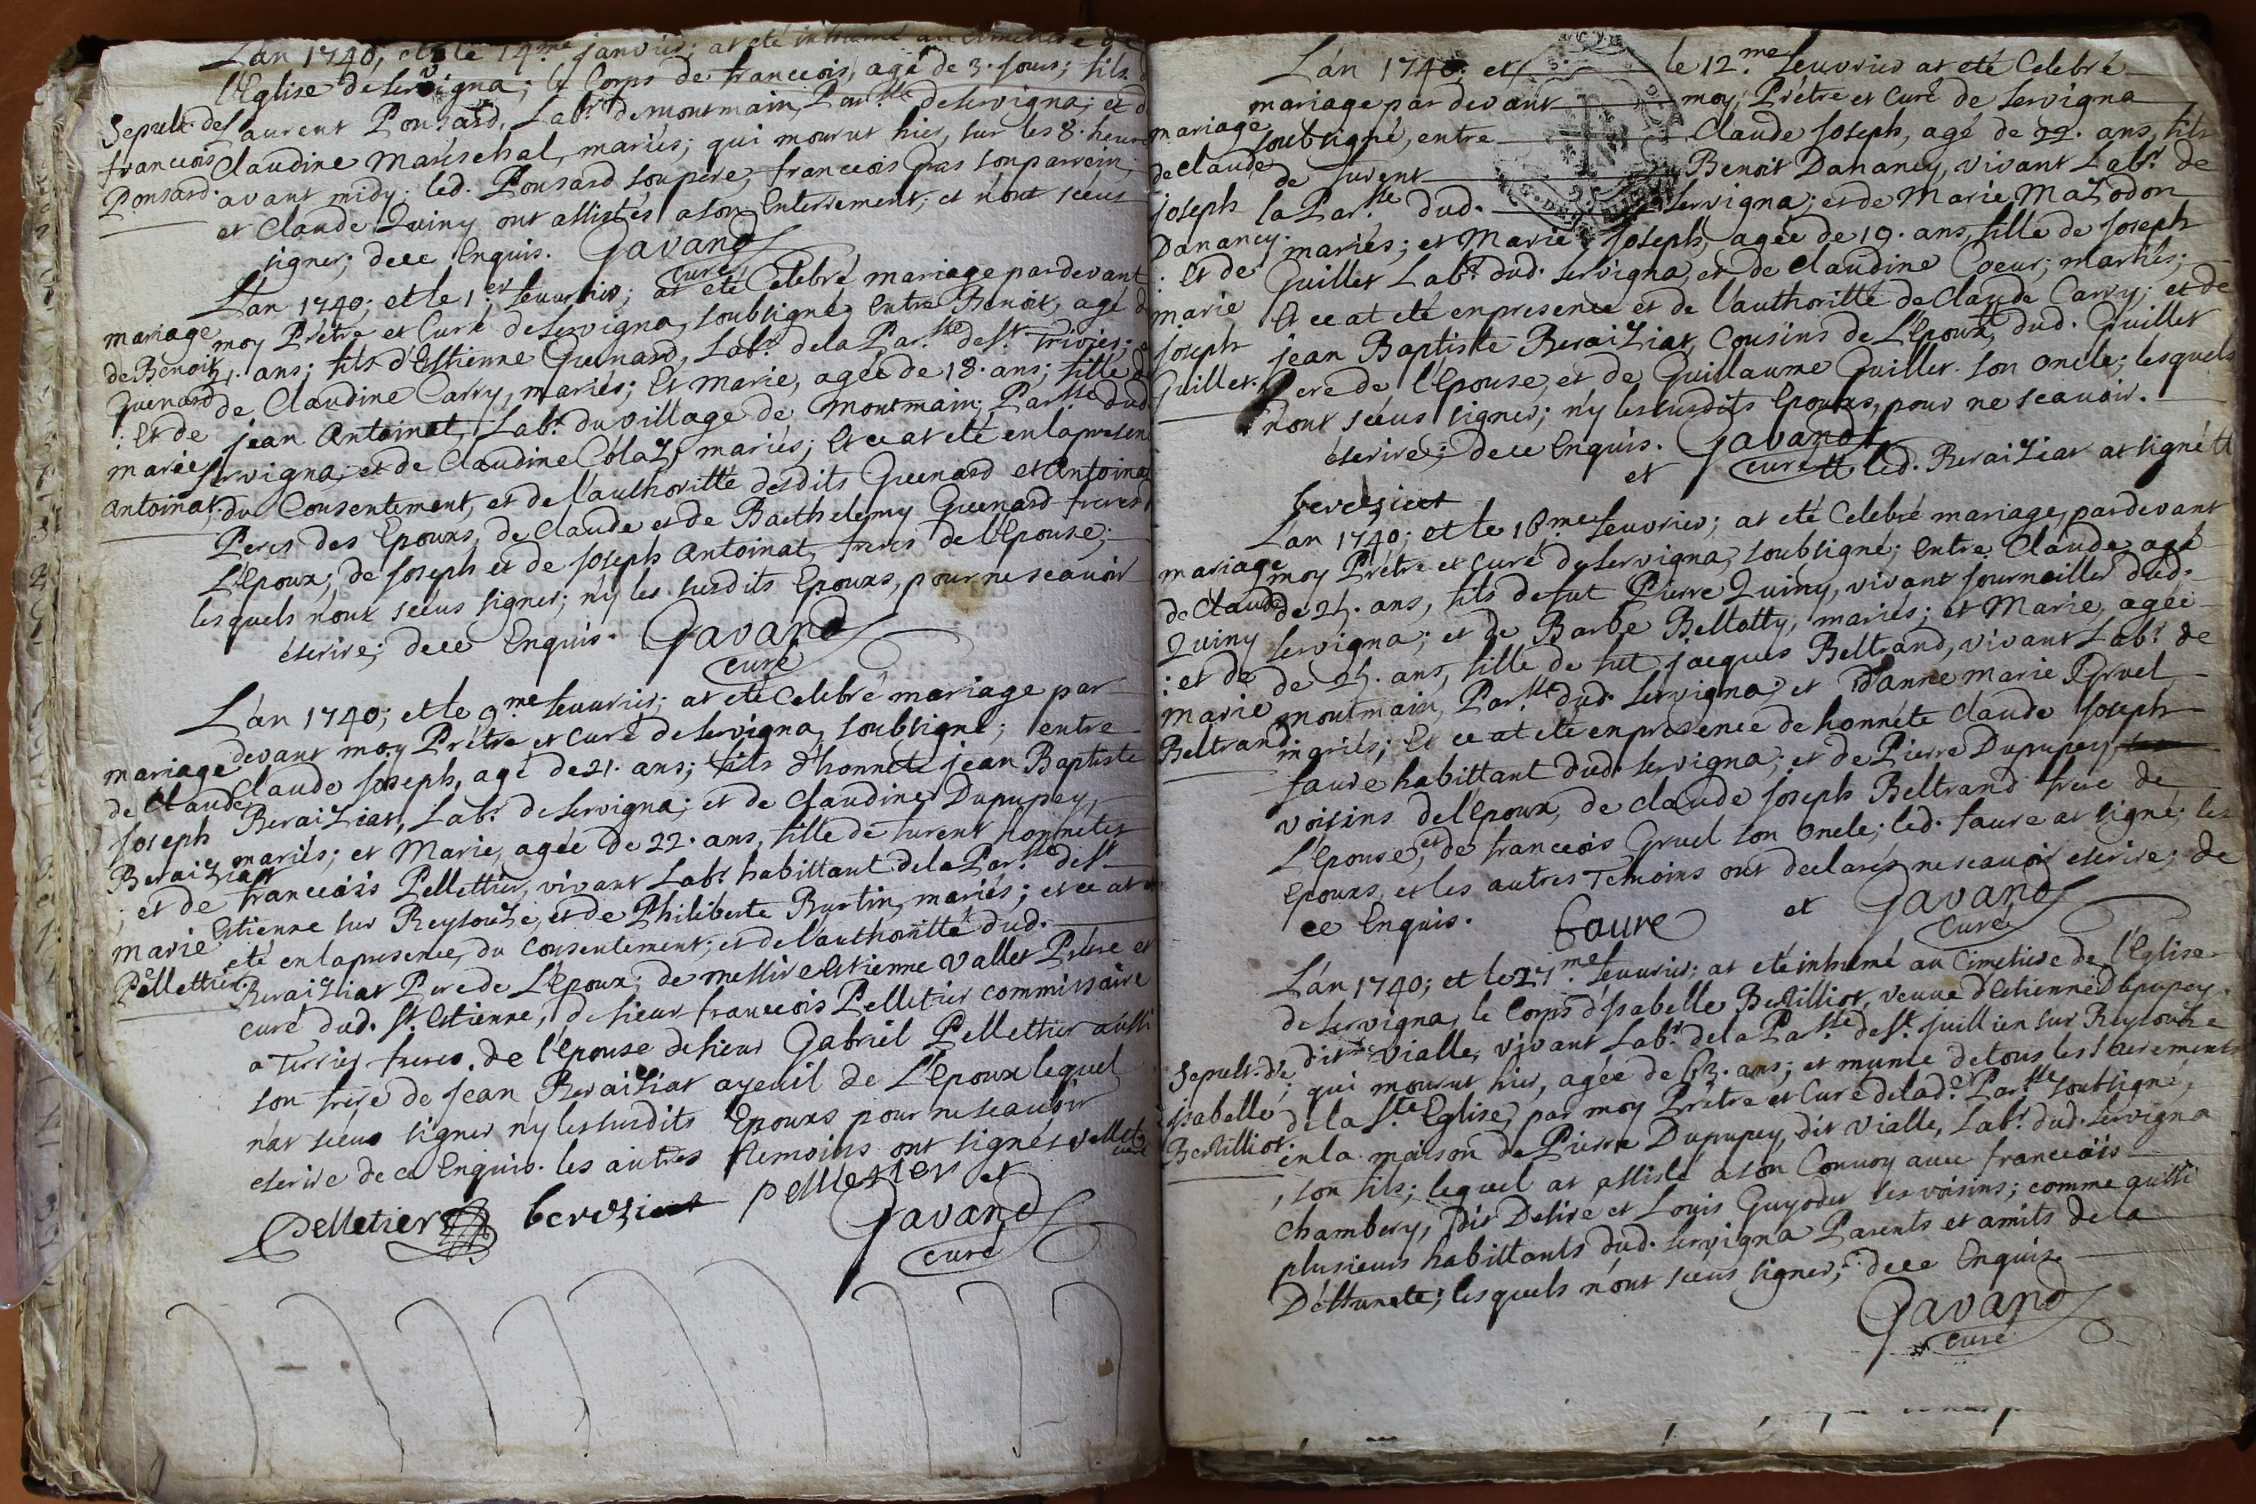 L'an 1740, et le 14.me janvier; at eté inhumé au Cimetiere de
l'Eglise de Servigna; le Corps de francois, agé de 3. jours; fils d
Sepult. de Laurent Ponsard, Labr. de montmain, Par.sse de servigna; et d
francois Claudine Maréschal, mariés; qui mourut hier, sur les 8. heure
Ponsard. avant midy. led. Ponsard son pere, francois Pas son parrein;
et Claude Quiny ont assistés a son Enterrement; et n'ont sceus
signer; dece Enquis. Gavand
curé
L'an 1740; et le 1.er feuvrier; at eté Celebré mariage pardevant
mariage moy Prétre et Curé de Servigna, soubsigné; Entre Benoit, agé d
de Benoit 21. ans; fils d'Estienne Guenard, Labr. de la Par.sse de St. Trivier;
Guenard de Claudine Carry, mariés; Et Marie, agée de 18. ans; fille d
: Et de jean Antoinat, Labr. du village de montmain, Par.sse dud.
marie servigna; et de Claudine Colaz, mariés; Et ce at eté en la presen
Antoinat. du Consentement, et de l'authoritté desdits Guenard et Antoinat
Peres des Epouxs, de Claude et de Barthelemy Guenard freres d
L'Epoux; de joseph et de joseph Antoinat, freres de l'Epouse;
lesquels n'ont sceus signer; n'y les susdits Epouxs, pour ne scavoir
escrire; dece Enquis. Gavand
curé
L'an 1740; et le 9.me feuvrier; at eté celebré mariage par
devant moy Prétre et curé de servigna, soubsigné; entre
mariage Claude joseph, agé de 21. ans; fils d'honnete jean Baptiste
de Claude
joseph Beraiziat, Labr. de servigna; et de Claudine Dupupey,
Beraiziat mariés; et Marie, agée de 22. ans, fille de furent honnetes
: et de francois Pellettier, vivant Labr. habittant de la Par.sse de St.
marie Estienne sur Reysouze, et de Philiberte Burtin, mariés; et ce at
Pellettier. eté en la presence, du Consentement; et de l'authoritté dud.
Beraiziat Pere de L'Epoux; de messire Estienne Vallet Prétre et
curé dud. St. Estienne, de sieur francois Pelletier commissaire
a Terrier freres de l'Epouse de sieur Gabriel Pellettier aussi
son frere de jean Beraiziat ayeuil de L'Epoux lequel
n'at sceus signer n'y les susdits Epouxs pour ne scavoir
escrire de ce Enquis. les autres temoins ont signés Vallet
curé
Pelletier bereziat pelletier et
Gavand
curé
L'an 1740; et le 12.me feuvrier at eté Celebré
mariage par devant moy, Prétre et Curé de servigna
mariage soubsigné, entre Claude joseph, agé de 22. ans, fils
de Claude de furent Benoit Dananey, vivant Labr. de
joseph la Par.sse dud. servigna; et de Marie Mazodon
Dananey. mariés; et Marie joseph, agée de 19. ans, fille de joseph
: Et de Guillet Labr. dud. servigna, et de Claudine Coeur; mariés;
marie Et ce at eté en presence et de l'authoritté de Claude Carry; et de
joseph jean Baptiste Beraiziat, Cousins de L'Epoux, dud. Guillet
Guillet. Pere de l'Epouse, et de Guillaume Guillet son oncle; lesquels
n'ont sceus signer; n'y les susdits Epouxs, pour ne scavoir.
escrire; dece Enquis. Gavand
et curé led. Beraiziat at signé
bereziat
L'an 1740; et le 16.me feuvrier; at eté Celebré mariage, pardevant
mariage moy Prétre et curé de servigna, soubsigné; Entre Claude agé
de Claude de 25. ans, fils de fut Pierre Quiny, vivant journeiller dud.
Quiny servigna; et de Barbe Bellatty, mariés; et Marie, agée
: et de de 25. ans, fille de fut jacques Beltrand, vivant Labr. de
marie montmain, Par.sse dud. servigna; et d'anne marie Gruel
Beltrand mariés; Et ce at eté en presence de honnéte Claude joseph
faure habittant dud. servigna; et de Pierre Dupupey
voisins de l'epoux, de Claude joseph Beltrand frere de
L'Epouse, et de francois Gruel son Oncle; led. faure at signé; les
Epouxs, et les autres Temoins ont declarés ne scavoir escrire; de
ce Enquis. faure et Gavand
curé
L'an 1740; et le 27.me feuvrier; at eté inhumé au Cimetiere de l'Eglise
de servigna, le Corps d'Isabelle Bertilliot, veuve d'Estienne Dupupey.
dit Vialle, vivant Labr. de la Par.sse de St. juillien sur Reysouze
Sepult. de ; qui mourut hier, agée de 63. ans; et munie de tous les Sacrements
isabelle de la Ste. Eglise, par moy Prétre et Curé de lad.e Par.sse soubsigné,
Bertilliot. en la maison de Pierre Dupupey, dit Vialle, Labr. dud. servigna
, son fils; lequel at assisté a son Convoy avec francois
Chambery, dit Desiré et Louis Guyodet ses voisins; comme aussi
plusieurs habittants dud. servigna Parents et amits de la
Déffuncte; lesquels n'ont sceus signer; dece Enquis.
Gavand
curé